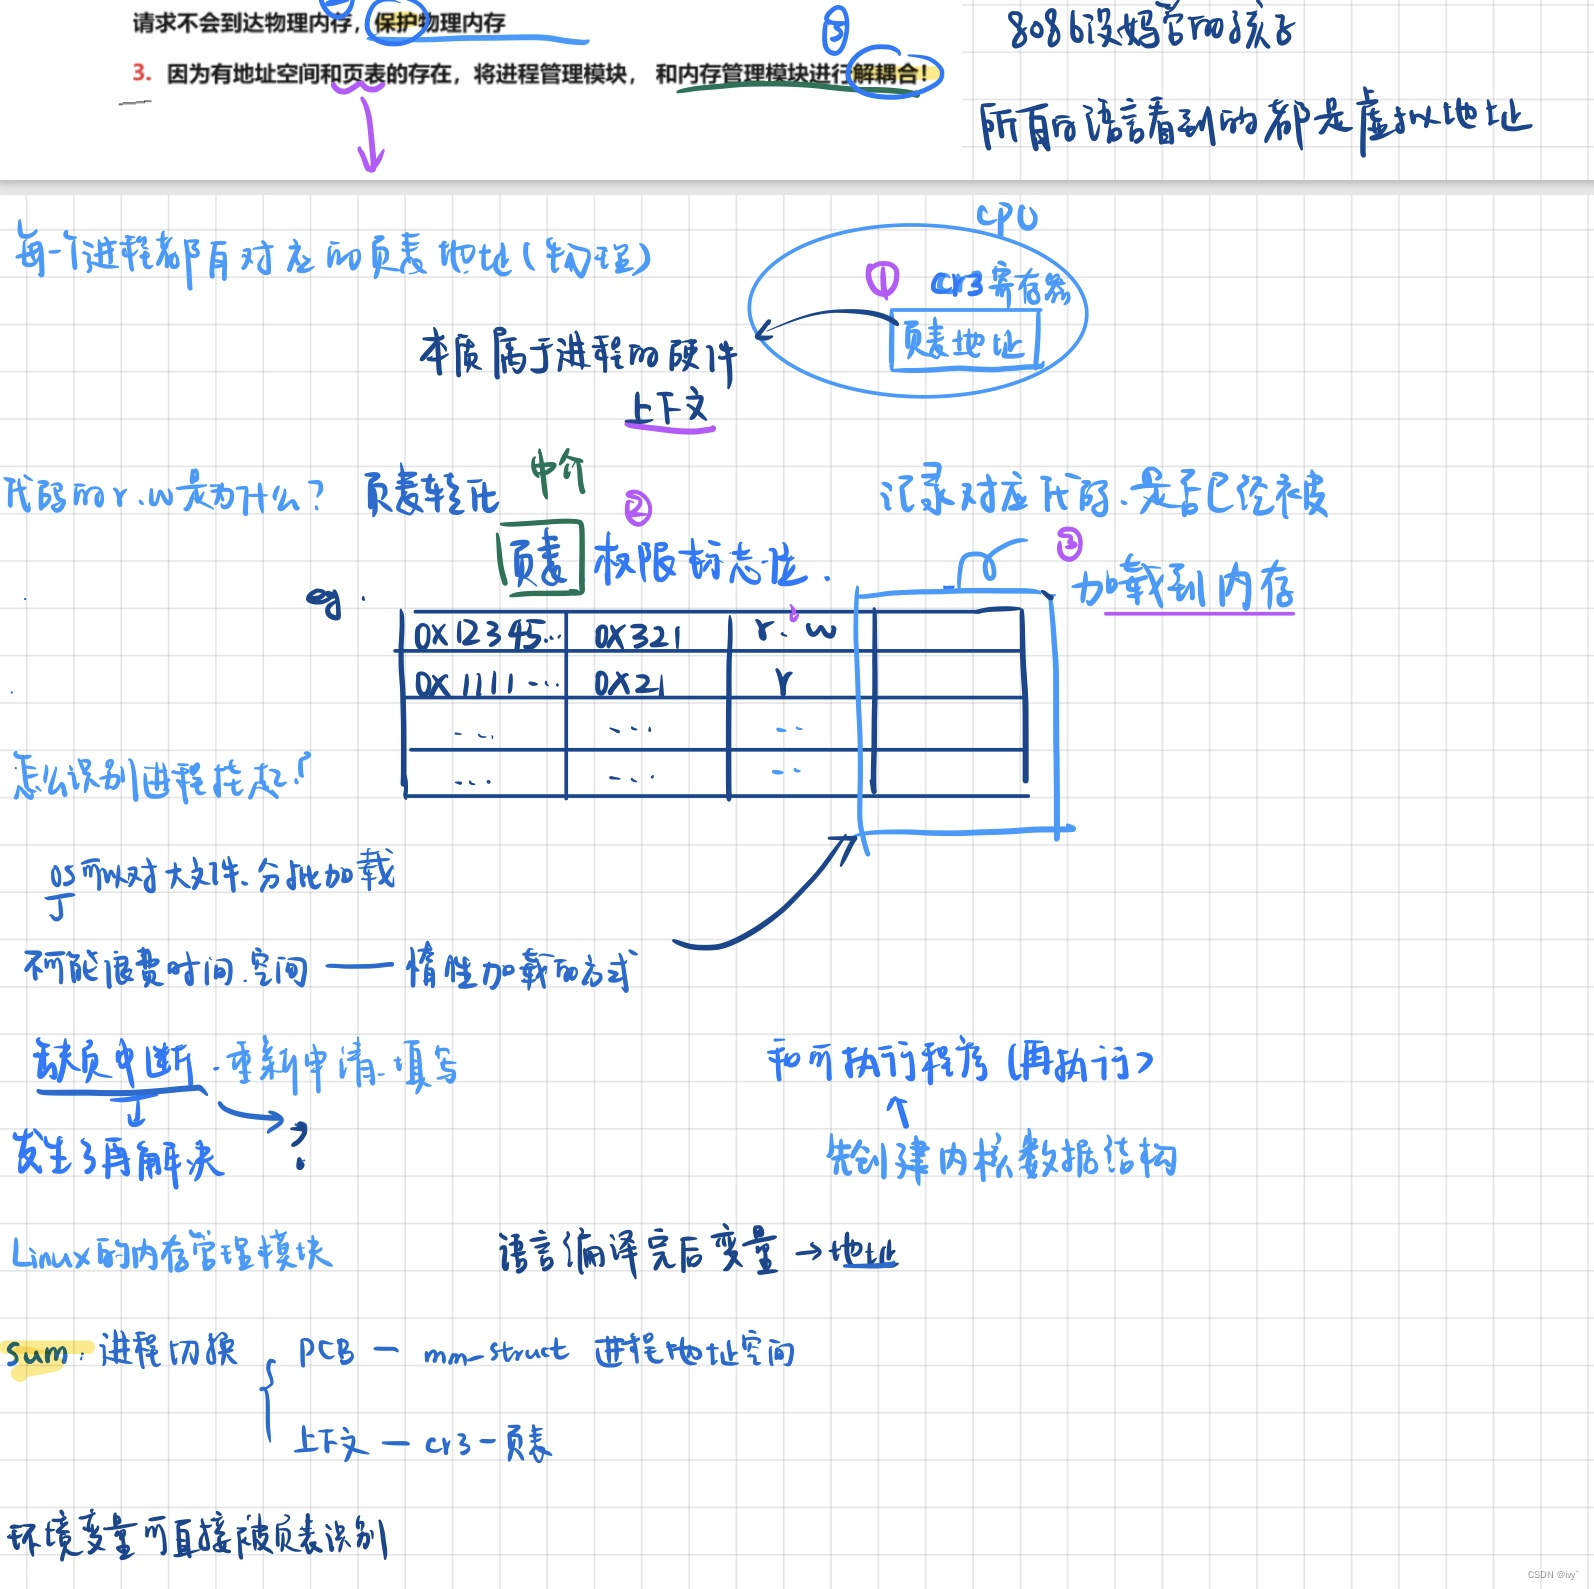 请求不会到达物理内存，保护物理内存
⑤
3. 因为有地址空间和页表的存在，将进程管理模块， 和内存管理模块进行解耦合！
8086没妈管的孩子
所有的语言看到的都是虚拟地址
每一个进程都有对应的页表地址(物理)
CPU
① cr3寄存器
页表地址
本质属于进程的硬件
上下文
代码的r.w是为什么？
页表转化
中介
②
页表 权限标志位.
记录对应代码.是否已经被
③
加载到内存
eg.
0X12345... 0X321 r.w
0X1111... 0X21 r
... ... ..
... ... ..
怎么识别进程挂起?
OS可以对大文件.分批加载
不可能浪费时间.空间 —— 惰性加载的方式
缺页中断.重新申请.填写
?
发生了再解决
和可执行程序(再执行)
先创建内核数据结构
Linux的内存管理模块
语言编译完后变量→地址
sum:进程切换
PCB — mm_struct 进程地址空间
上下文 — cr3 — 页表
环境变量可直接被页表识别
CSDN @lvy~